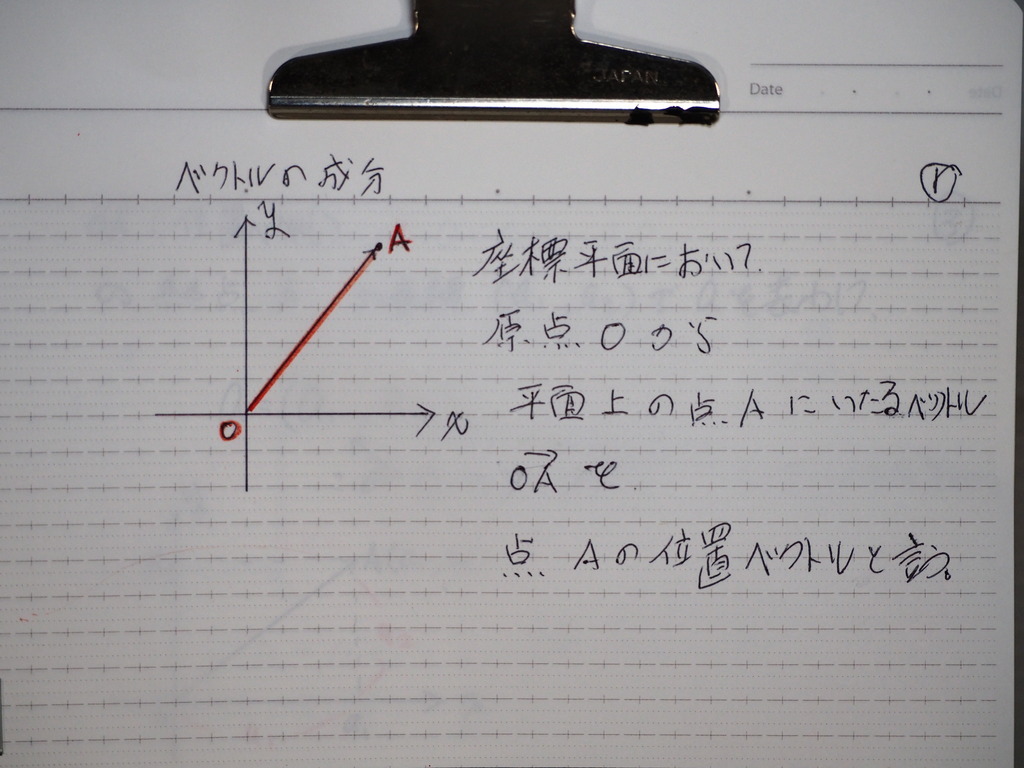 JAPAN
Date
ベクトルの成分
①
y
A
O
x
座標平面において
原点Oから
平面上の点Aにいたるベクトル
OA→を
点Aの位置ベクトルと言う。